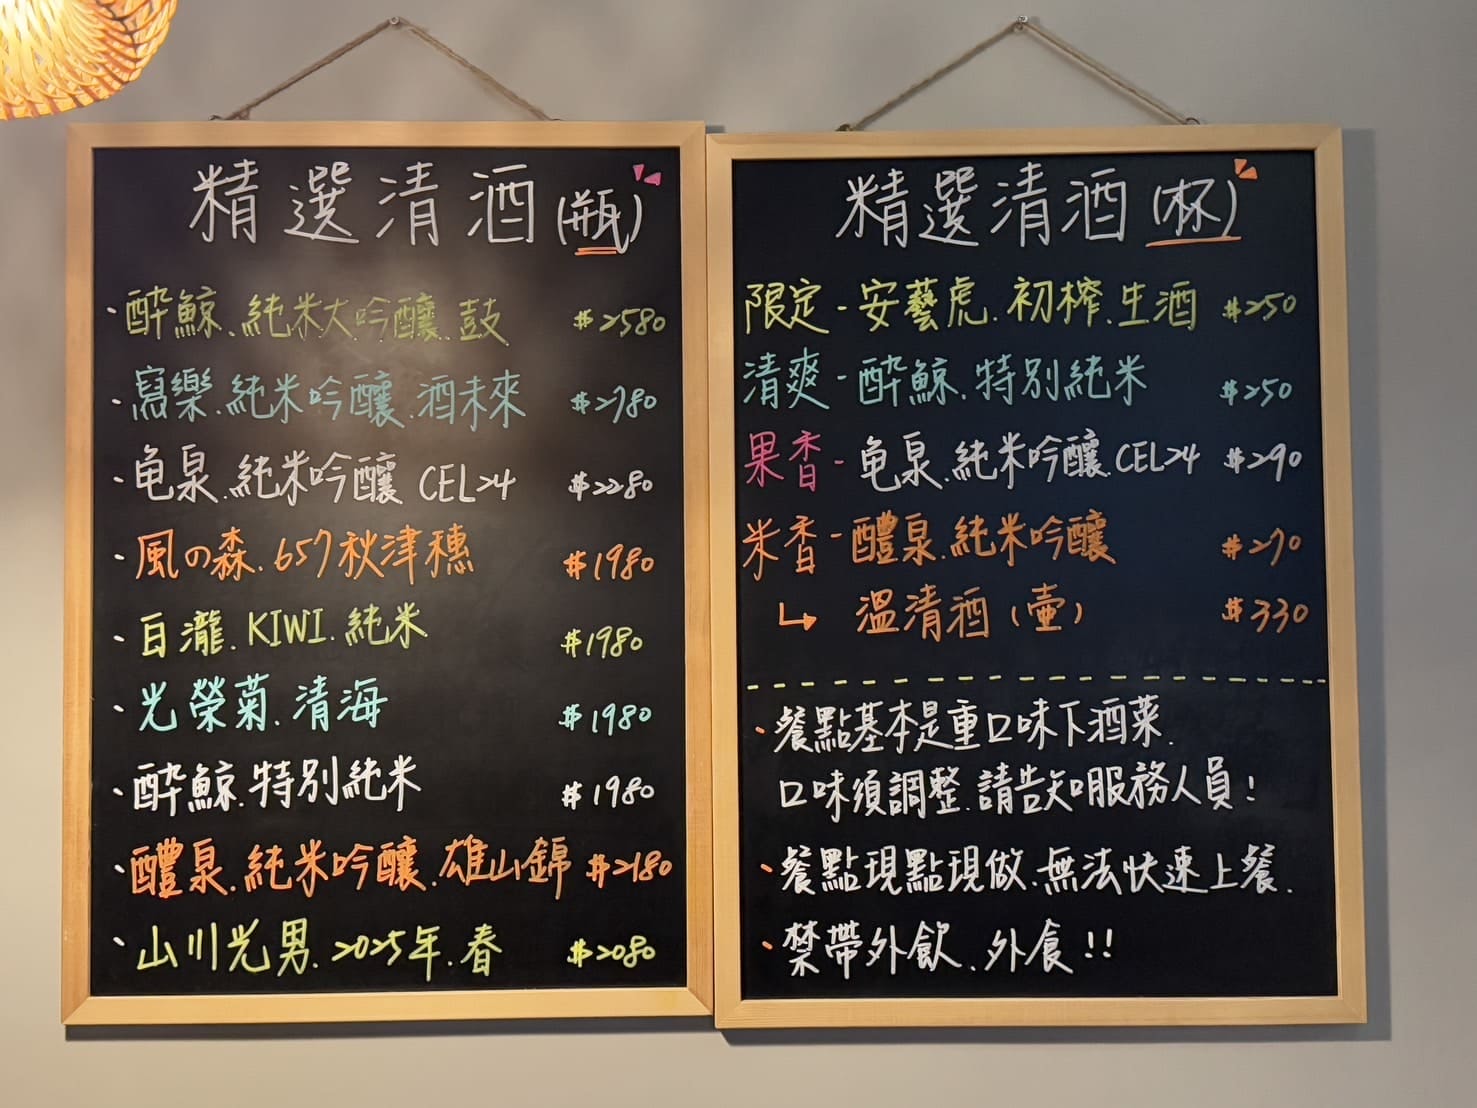 精選清酒(瓶)
·酔鯨.純米大吟釀.鼓 $2580
·寫樂.純米吟釀.酒未來 $2780
·亀泉.純米吟釀 CEL24 $2280
·風の森.657秋津穗 $1980
·白瀧.KIWI.純米 $1980
·光榮菊.清海 $1980
·酔鯨.特別純米 $1980
·醴泉.純米吟釀.雄山錦 $2180
·山川光男.2025年.春 $2080
精選清酒(杯)
限定-安藝虎.初榨.生酒 $250
清爽-酔鯨.特別純米 $250
果香-亀泉.純米吟釀.CEL24 $290
米香-醴泉.純米吟釀 $270
↳ 溫清酒(壷) $330
·餐點基本是重口味下酒菜.
口味須調整.請告知服務人員!
·餐點現點現做.無法快速上餐.
·禁帶外飲.外食!!